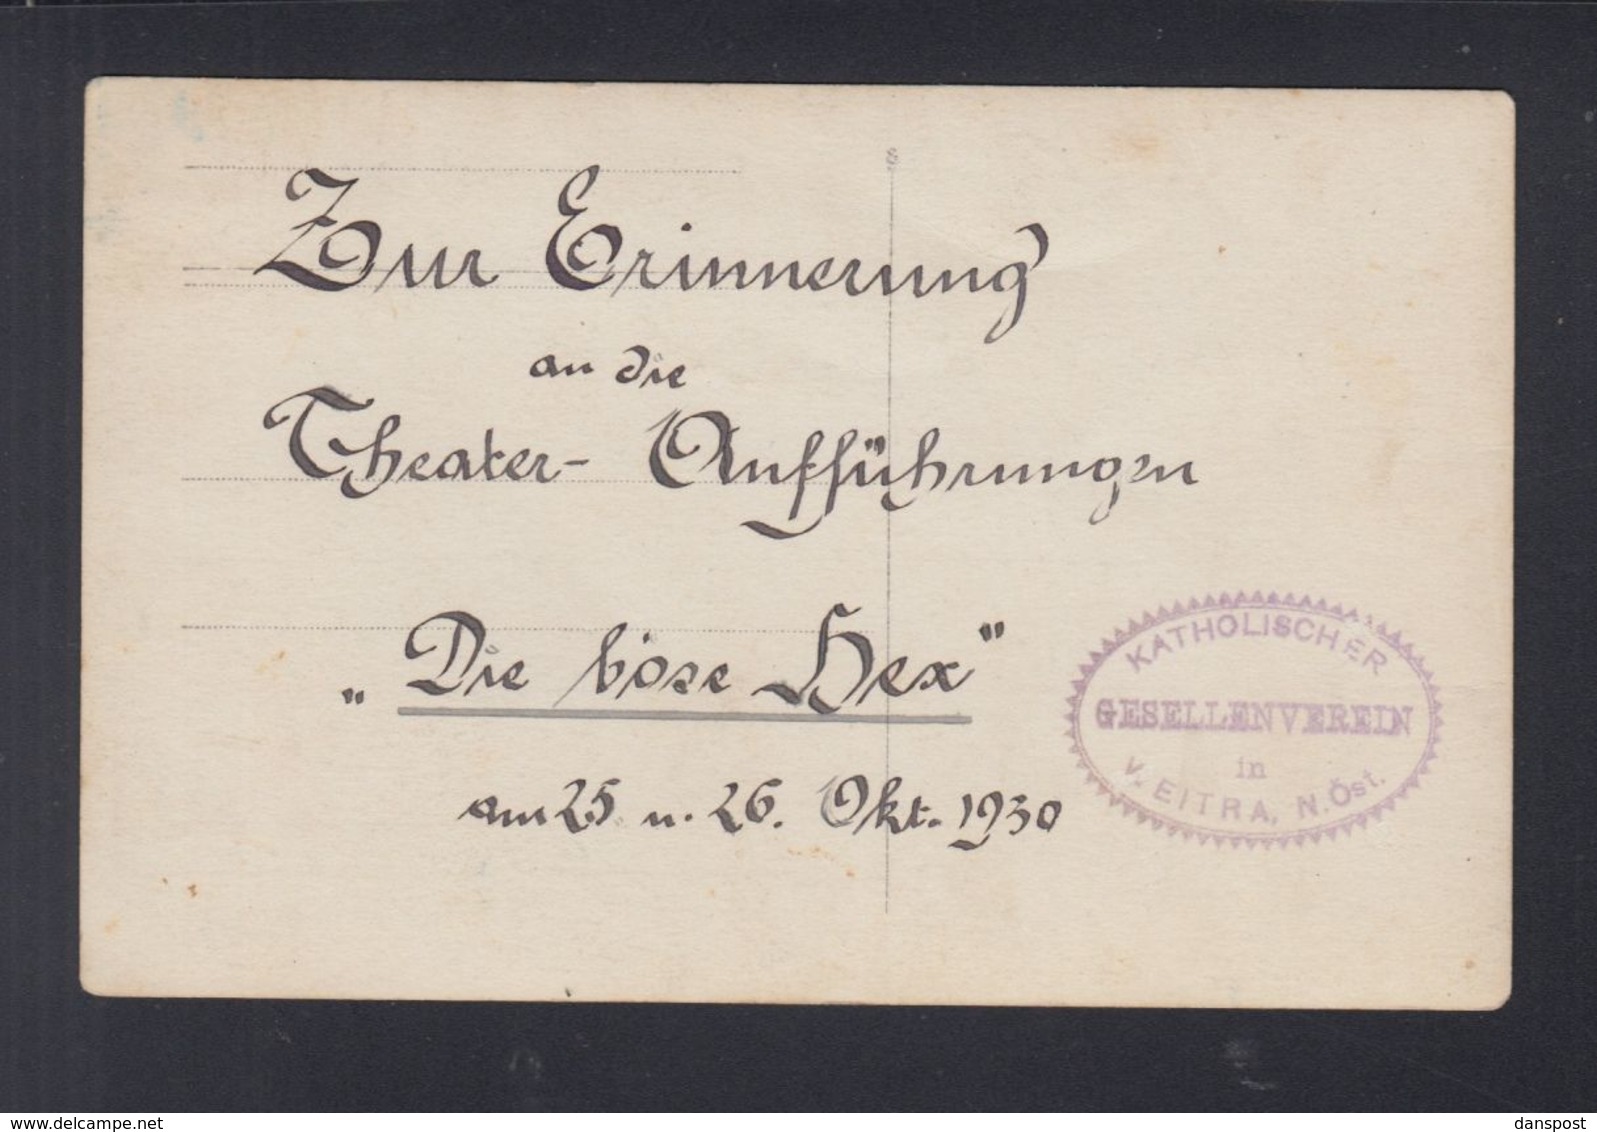 Zur Erinnerung
an die
Theater- Aufführungen
„Die böse Hex"
am 25. u. 26. Okt. 1930
KATHOLISCHER
GESELLENVEREIN
in
WEITRA, N.Öst.
www.delcampe.net
danspost